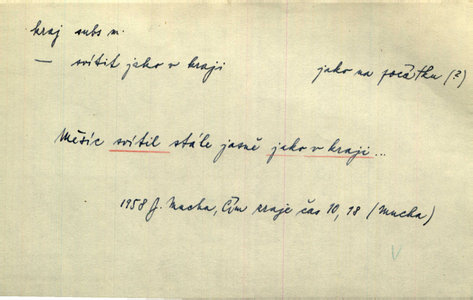 kraj subs m.
— svítit jako v kraji jako na počátku (?)
Měsíc svítil stále jasně jako v kraji...
1958 J. Mucha, Čím zraje čas 10, 18 (Mucha)